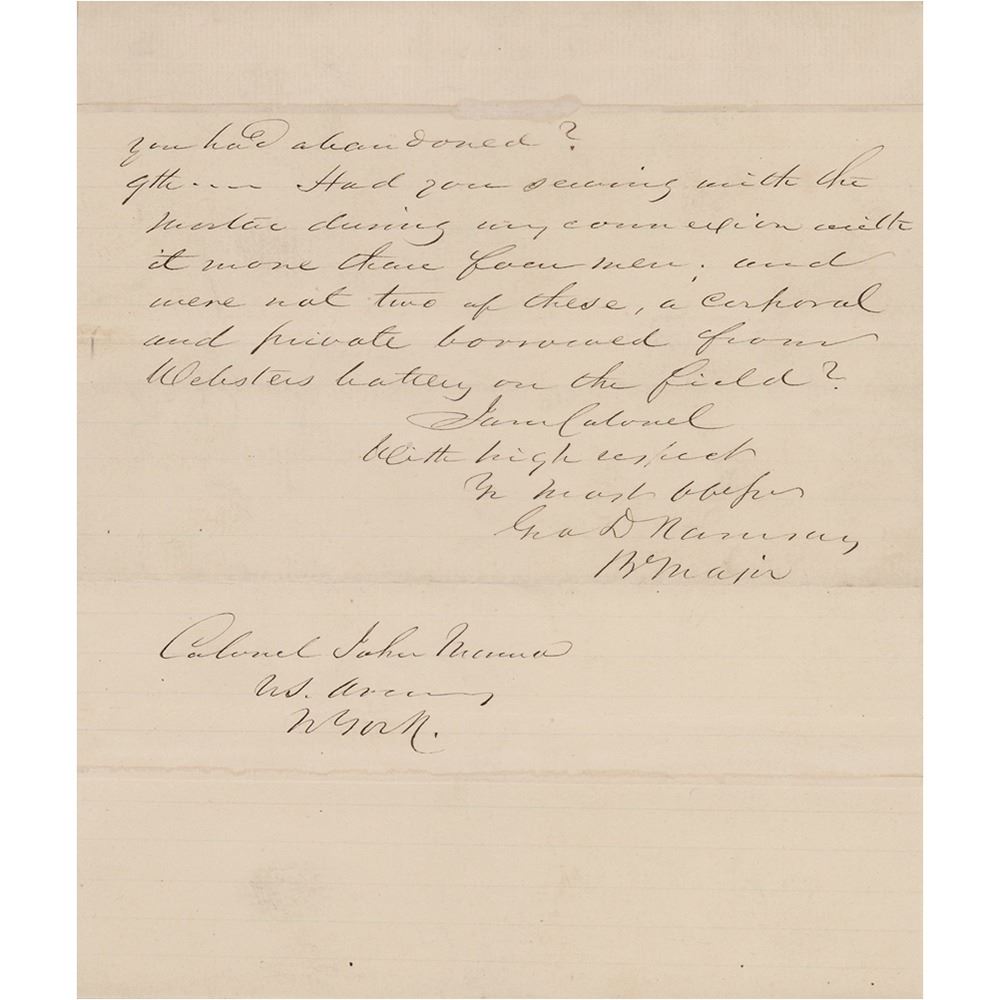 you had abandoned?
9th --- Had you serving with the
mortar during my connexion with
it more than four men; and
were not two of these, a corporal
and private borrowed from
Websters battery on the field?
I am Colonel
With high respect
Yr most
Geo D Ramsay
Br Major
Colonel John Munroe
U.S. Army
N York.